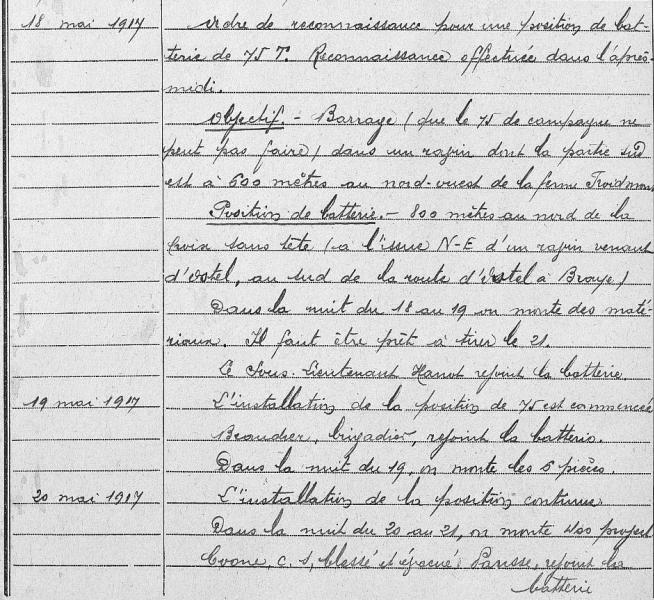 18 mai 1917 Ordre de reconnaissance pour une position de bat-
terie de 75 T. Reconnaissance effectuée dans l'après-
midi.
Objectif. - Barrage (que le 75 de campagne ne
peut pas faire) dans un ravin dont la partie sud
est à 600 mètres au nord-ouest de la ferme Froidmont
Position de batterie. - 800 mètres au nord de la
Croix sans tête (à l'issue N-E d'un ravin venant
d'Ostel, au sud de la route d'Ostel à Braye)
Dans la nuit du 18 au 19 on monte des maté-
riaux. Il faut être prêt à tirer le 21.
Le Sous-Lieutenant Hanot rejoint la batterie
19 mai 1917 L'installation de la position de 75 est commencée
Beaudier, brigadier, rejoint la batterie.
Dans la nuit du 19, on monte les 5 pièces.
20 mai 1917 L'installation de la position continue
Dans la nuit du 20 au 21, on monte 400 project
c. s, blessé et évacué; Parisse, rejoint la
batterie